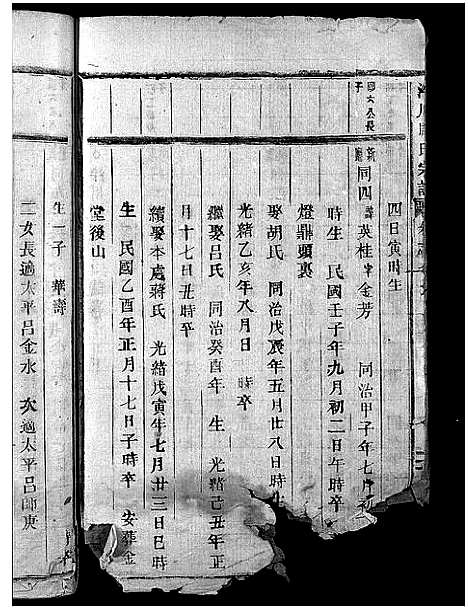 四日寅時生
國六公長子
同四 諱英桂字金芳 同治甲子年七月初
時生 民國壬子年九月初二日午時卒
燈鼎頭裏
娶胡氏 同治戊辰年五月廿八日時生
光緒乙亥年八月日 時卒
繼娶呂氏 同治癸酉年 生 光緒己丑年正
月十七日丑時卒
續娶本處蔣氏 光緒戊寅年七月廿三日巳時
生 民國乙酉年正月十七日子時卒 安葬金
堂後山
生一子 華壽
二女長適太平呂金水 次適太平呂帥庚